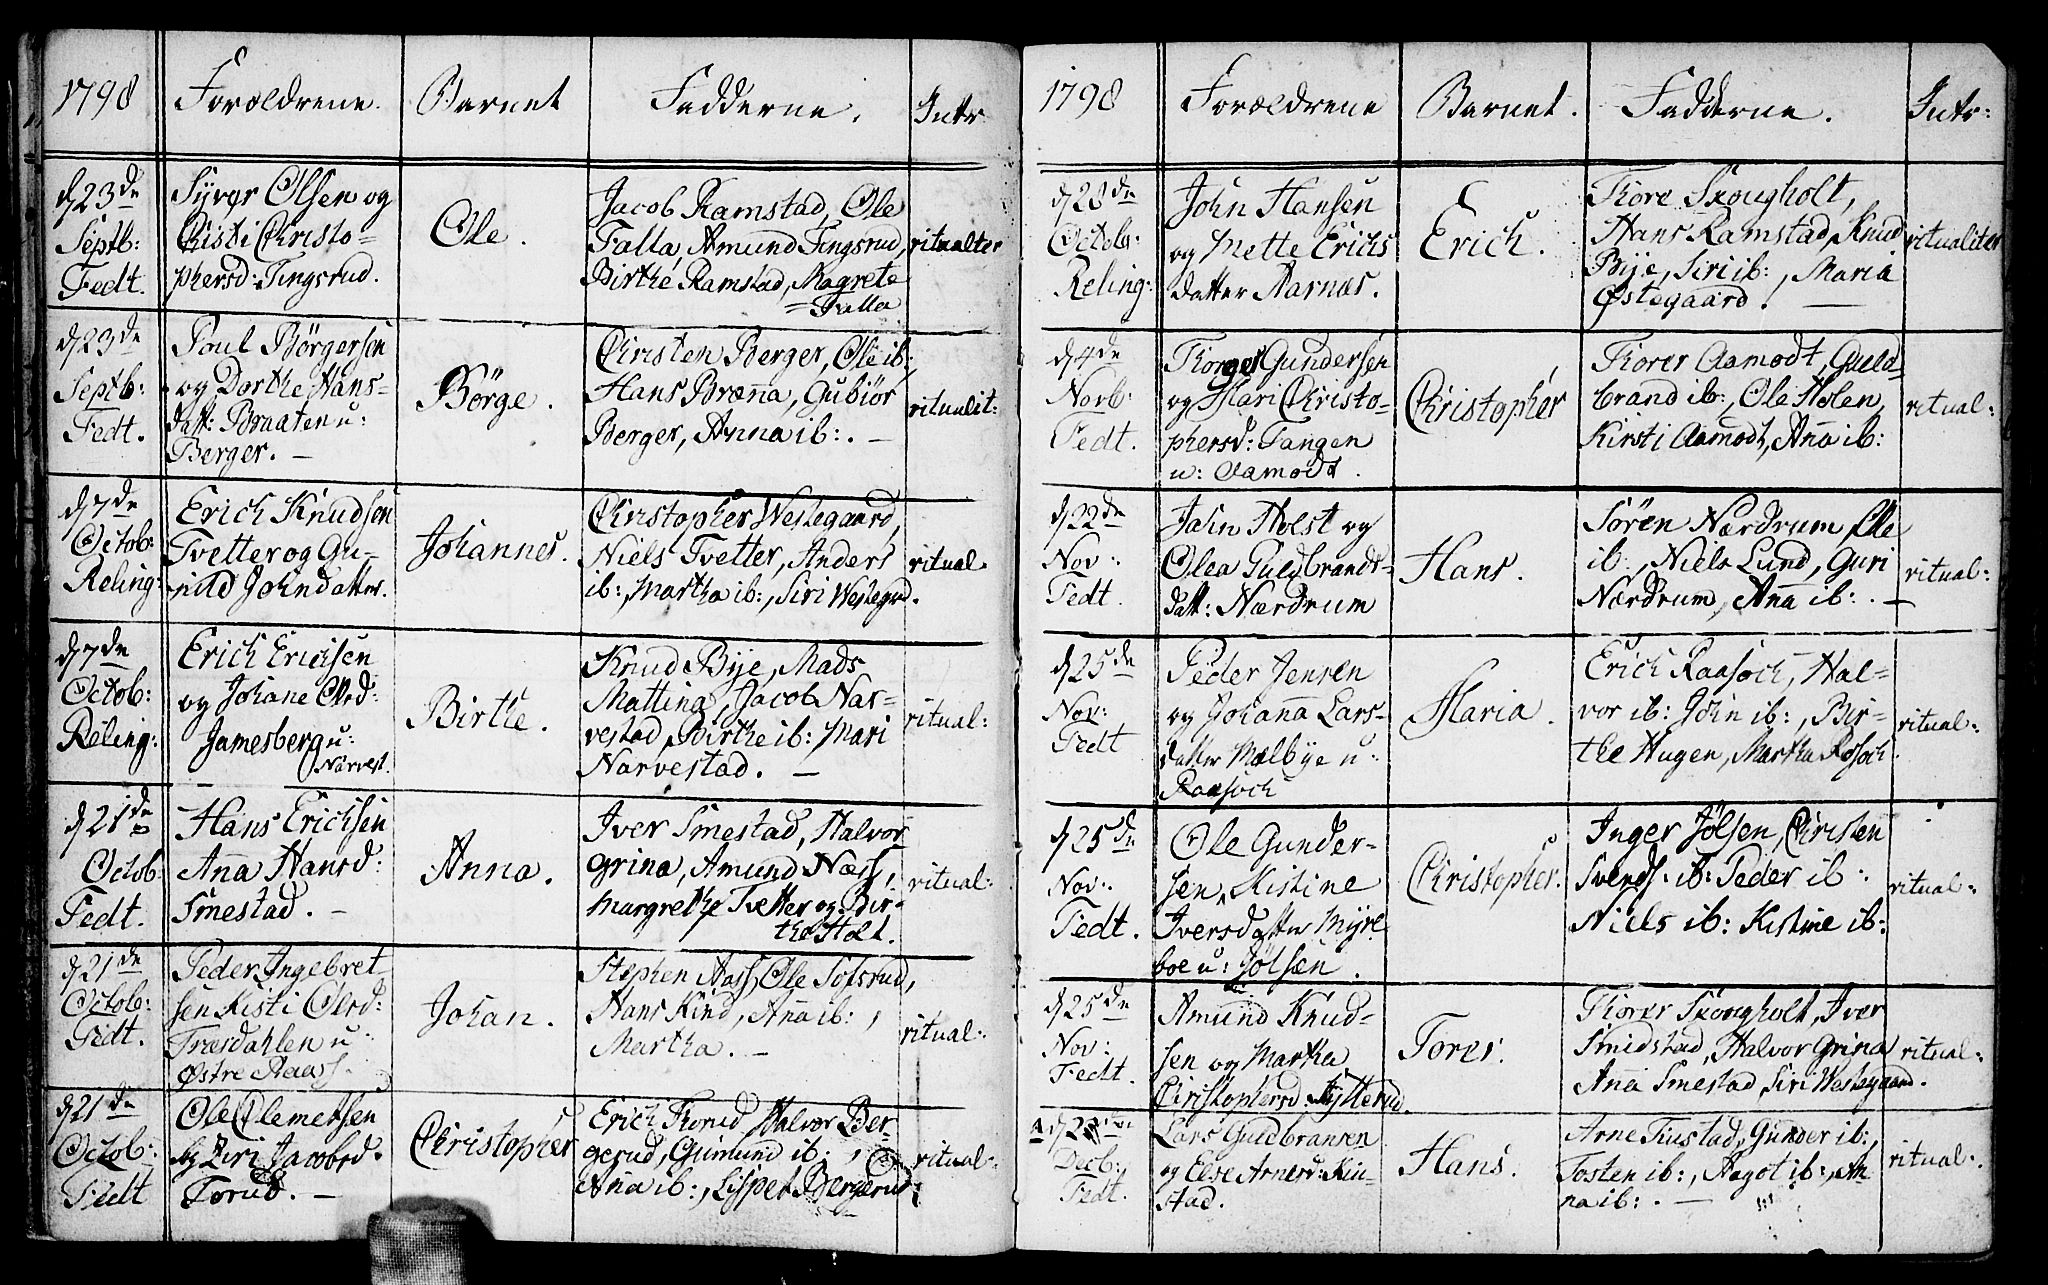 1798 Forældrene. Barnet Fadderne. Intr
d 23de Septb: Fedt.
Syver Olsen og
Kisti Christo-
phersd: Tingsrud.
Ole.
Jacob Ramstad, Ole
Falla, Amund Tingsrud,
Birthe Ramstad, Magrete
=Falla
ritualter
d 23de Septb: Fedt.
Poul Börgersen
og Dorthe Hans-
datt: Braaten u:
Berger. -
Börge.
Christen Berger, Ole ib:
Hans Bræn̄a, Gubiör
Berger, An̄a ib:. -
ritualit:
d 7de Octob: Reling:
Erich Knudsen
Tvetter og Gu-
nild Johndatter.
Johannes.
Christopher Westegaard,
Niels Tvetter, Anders
ib:, Martha ib:, Siri Westegrd.
ritual.
d 7de Octob: Reling:
Erich Erichsen
og Johane Olsd:
Jamesberg u:
Narvest.
Birthe.
Knud Bye, Mads
Mattina, Jacob Nar-
vestad, Birthe ib: Mari
Narvestad. -
ritual:
d 21de Octob: Fedt.
Hans Erichsen
An̄a Hansd:
Smestad. -
Anna.
Iver Smestad, Halvor
Grina, Amund Næss,
Margrethe Tvetter og Bir-
the Holt.
ritual:
d 21de Octob: Fedt.
Peder Ingebret
sen Kisti Olsd:
Træsdahlen u:
Østre Aass.
Johan.
Stephen Aass, Ole Sofsrud,
Hans Kind, An̄a ib:,
Martha. -
ritual:
d 21de Octob: Fedt
Ole Clemetsen
og Siri Jacobsd.
Torud. -
Christopher
Erich Torud, Halvor Ber-
gerud, Gunund ib:,
An̄a ib:, Lispet Bergerud:
ritual.
1798 Forældrene Barnet. Fadderne. Intr:
d 28de Octobr: Reling:
John Hansen
og Mette Erichs
datter Aarnæs.
Erich.
Thore Skougholt,
Hans Ramstad, Knud
Bye, Siri ib:, Maria
Østegaard. -
ritualiter
d 4de Novb: Fedt.
Thorger Gundersen
og Mari Christo-
phersd: Tangen
u: Aamodt.
Christopher
Thorer Aamodt, Guld-
brand ib:, Ole Holen
Kirsti Aamodt, An̄a ib:
ritual:
d 22de Nov: Fedt.
John Holst og
Olea Guldbrands-
datt: Nærdrum
Hans.
Sören Nærdrum, Ole
ib:, Niels Lund, Guri
Nærdrum, An̄a ib:. -
ritual:
d 25de Nov: Fedt
Peder Jensen
og Johan̄a Lars-
datter Mælbye u:
Raasoch
Maria.
Erich Raasoch, Hal-
vor ib: John ib:, Bir-
the Hugen, Martha Rosoch.
ritual:
d 25de Nov: Fedt.
Ole Gunder-
sen, Kistine
Iversdatter Myre
boe u: Jölsen.
Christopher.
Inger Jölsen, Christen
Svends: ib: Peder ib:
Niels ib: Kistine ib:
ritual:
d 25de Nov: Fedt.
Amund Knud-
sen og Martha
Christophersd: Hytterud.
Torer.
Thorer Skougholt, Iver
Smidstad, Halvor Grina
An̄a Smestad, Siri Westegaard.
ritual:
Decb: Fedt.
Lars Guldbransen
og Else Arnesd: Kiu-
stad.
Hans.
Arne Kiustad, Gunder ib:,
Tosten ib:, Aagot ib:, An-
na ib:. -
ritual: